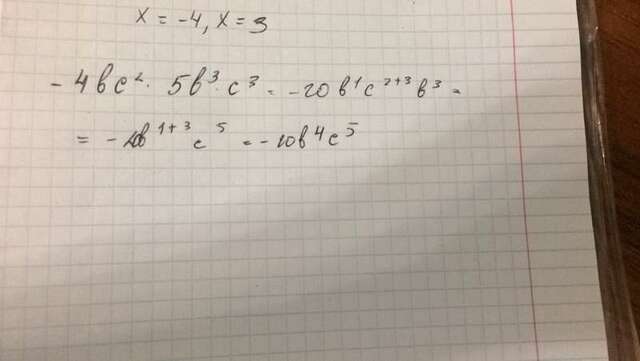 x = -4, x = 3
-4bc². 5b³.c³ = -20b¹c²⁺³b³ =
= -20b¹⁺³c⁵ = -20b⁴c⁵